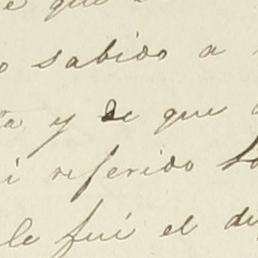 e que
sabido a
ta y de que
i referido
le fué el de